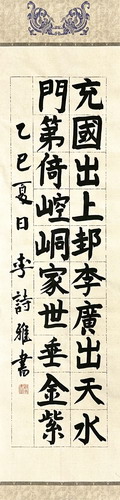 充國出上邽李廣出天水
門第倚崆峒家世垂金紫
乙巳夏日李詩雅書